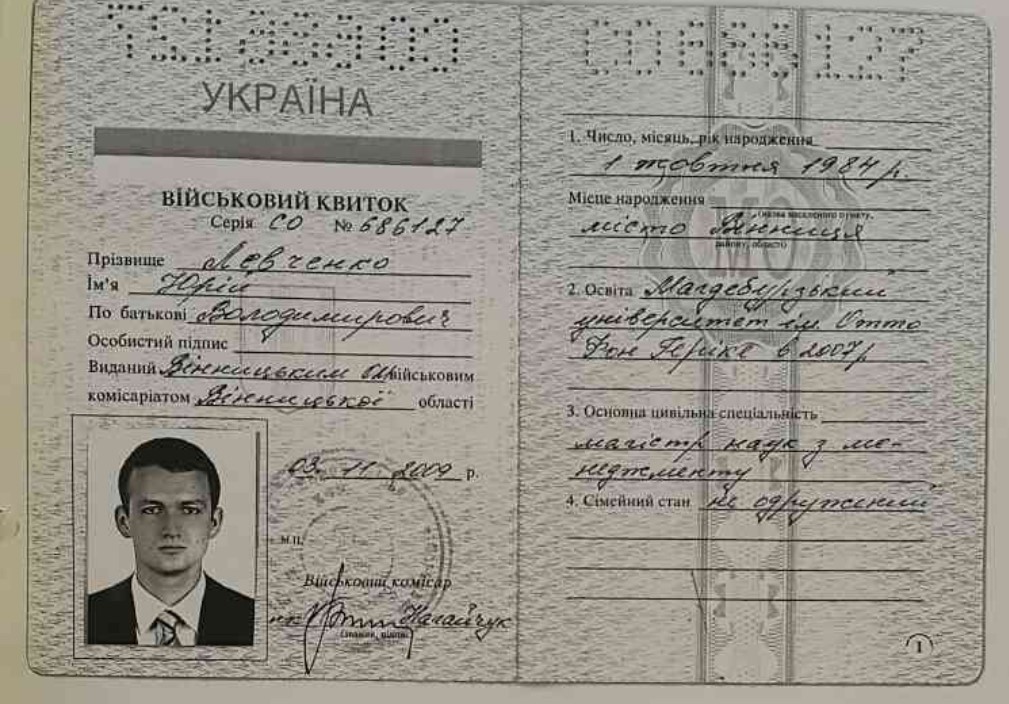 УКРАЇНА
ВІЙСЬКОВИЙ КВИТОК
Серія СО № 686127
Прізвище Левченко
Ім'я Юрій
По батькові Володимирович
Особистий підпис
Виданий Вінницьким ОМвійськовим
комісаріатом Вінницької області
03. 11 2009 р.
М.П.
Військовий комісар
Нагайчук
(звання, підпис)
СО 686127
1. Число, місяць, рік народження
1 жовтня 1984 р.
Місце народження
(назва населеного пункту,
місто Вінниця
району, області)
2. Освіта Магдебурзький
університет ім. Отто
Фон Геріке в 2007р
3. Основна цивільна спеціальність
магістр наук з ме-
неджменту
4. Сімейний стан не одружений
1